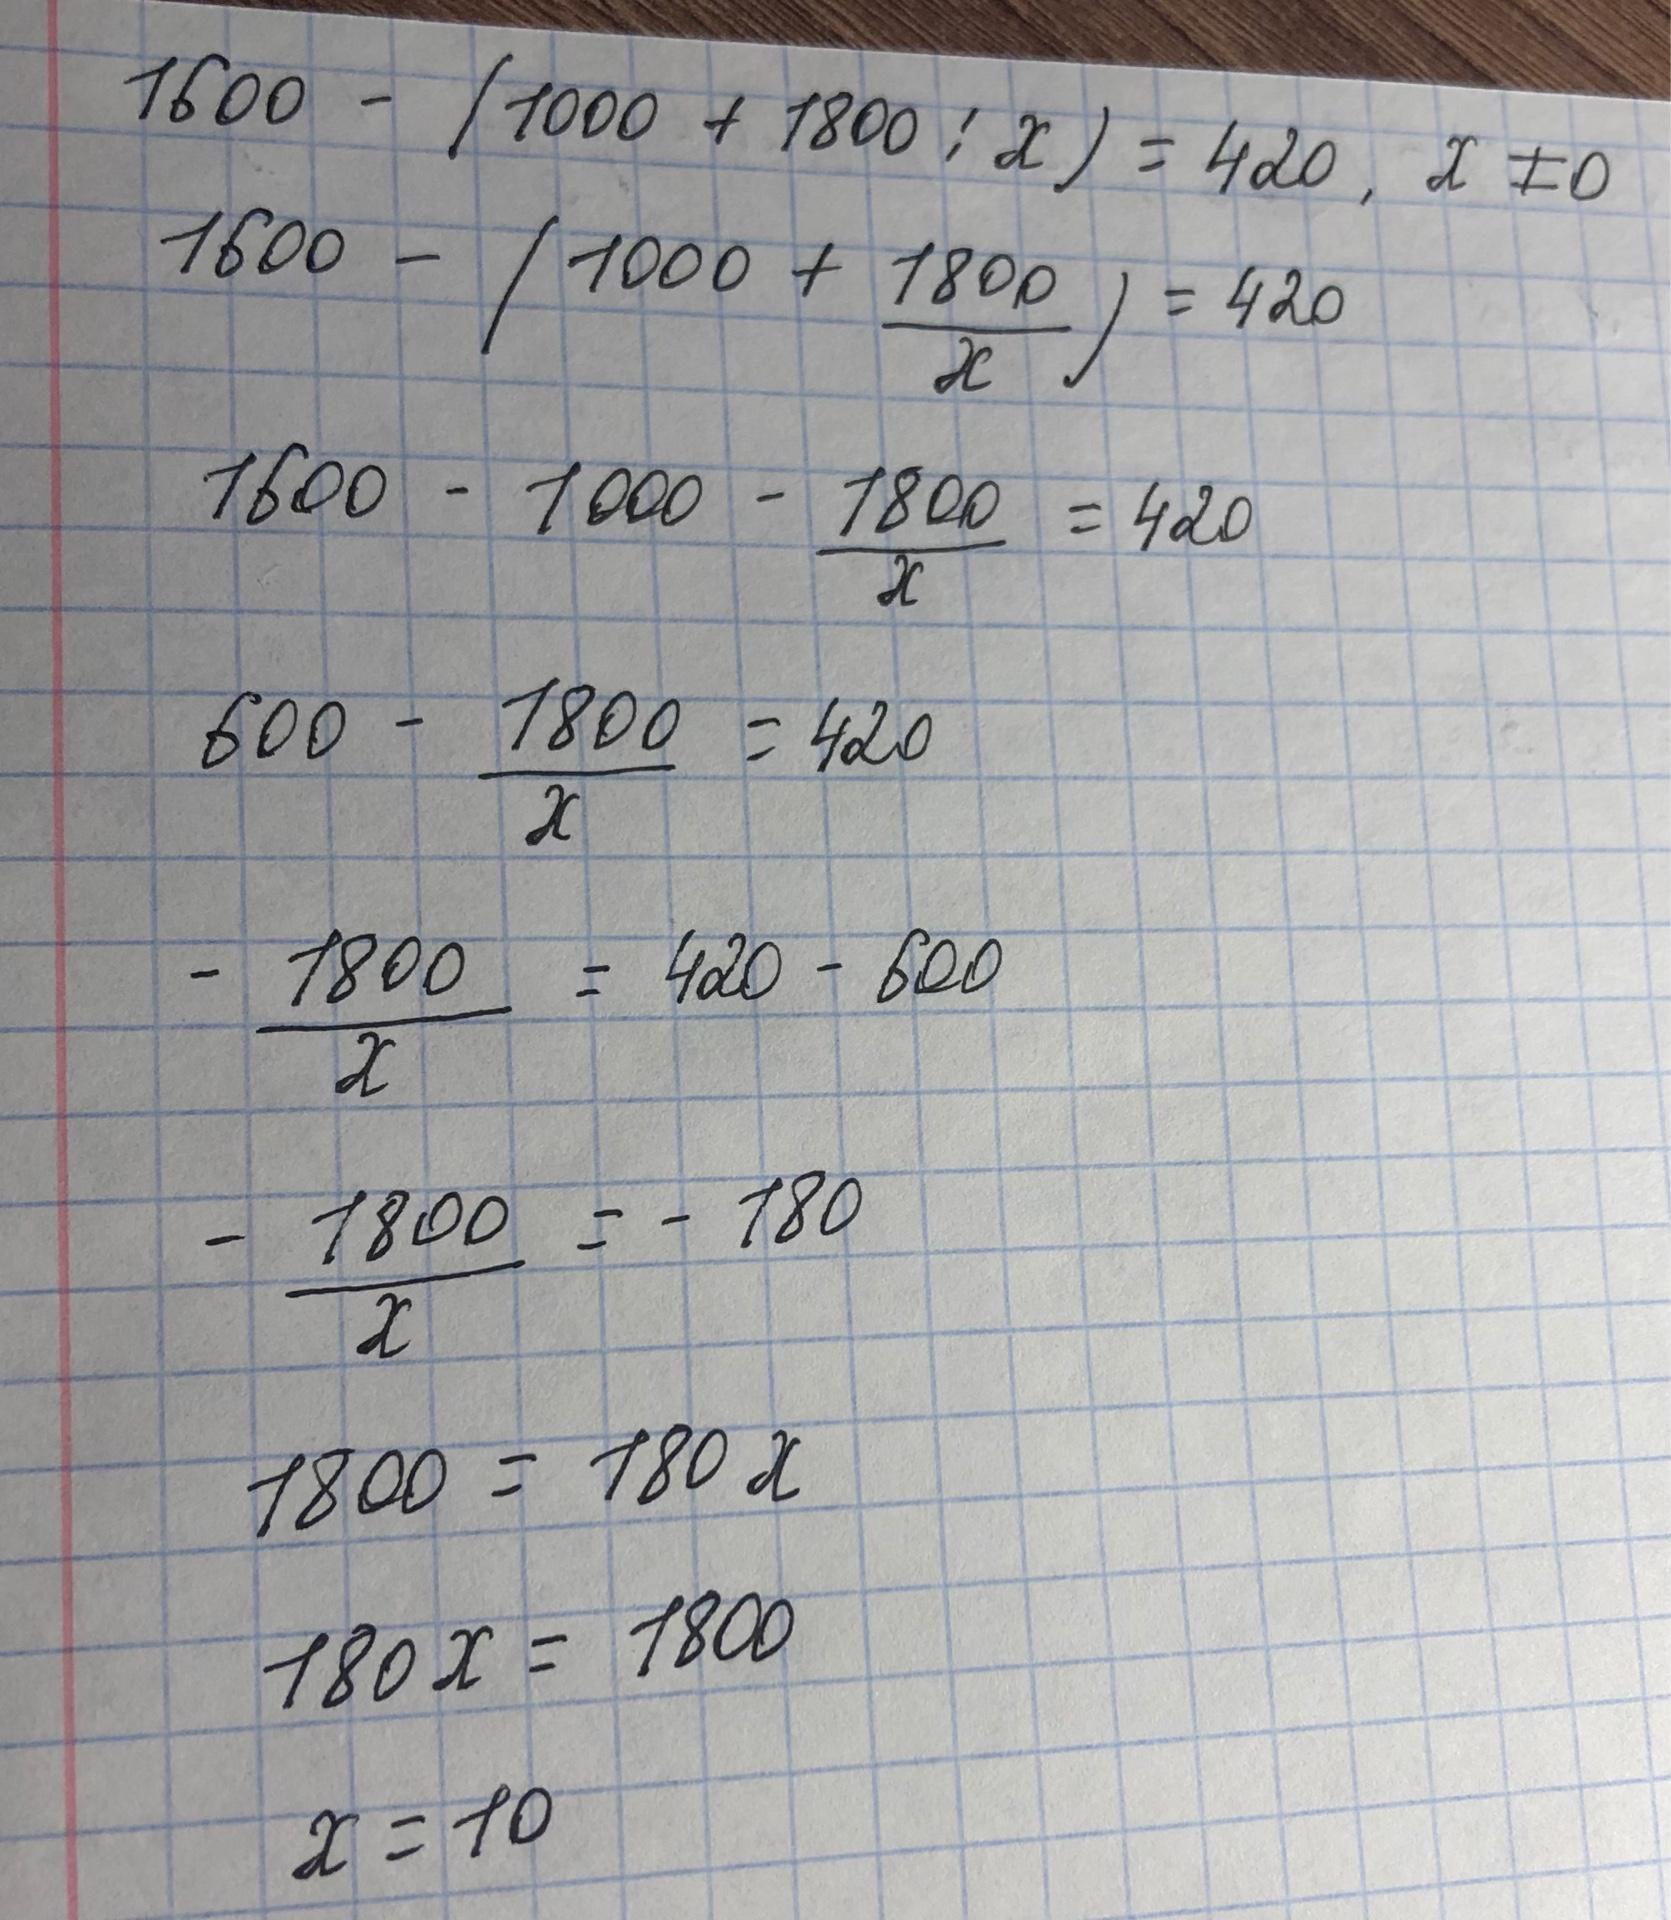 1600 - (1000 + 1800 : x) = 420, x ≠ 0
1600 - (1000 + 1800/x) = 420
1600 - 1000 - 1800/x = 420
600 - 1800/x = 420
- 1800/x = 420 - 600
- 1800/x = - 180
1800 = 180x
180x = 1800
x = 10